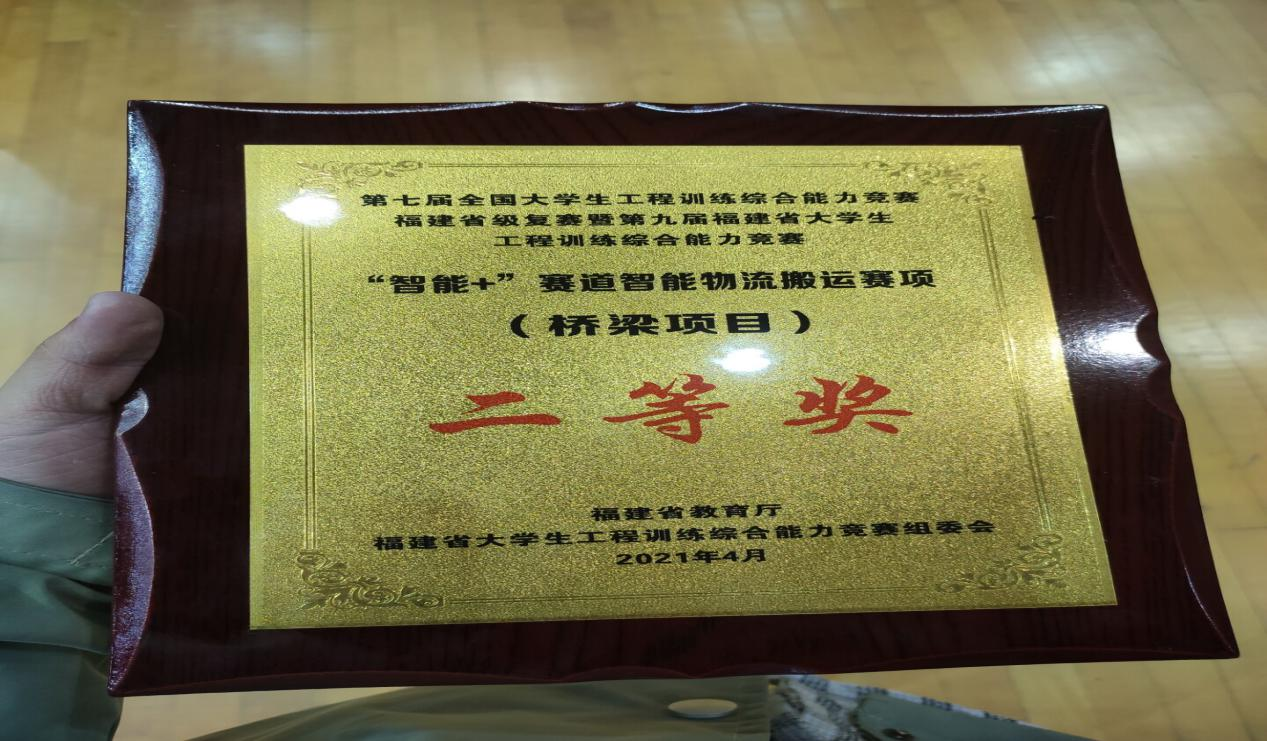 第七届全国大学生工程训练综合能力竞赛
福建省级复赛暨第九届福建省大学生
工程训练综合能力竞赛
“智能+”赛道智能物流搬运赛项
（桥梁项目）
二等奖
福建省教育厅
福建省大学生工程训练综合能力竞赛组委会
2021年4月